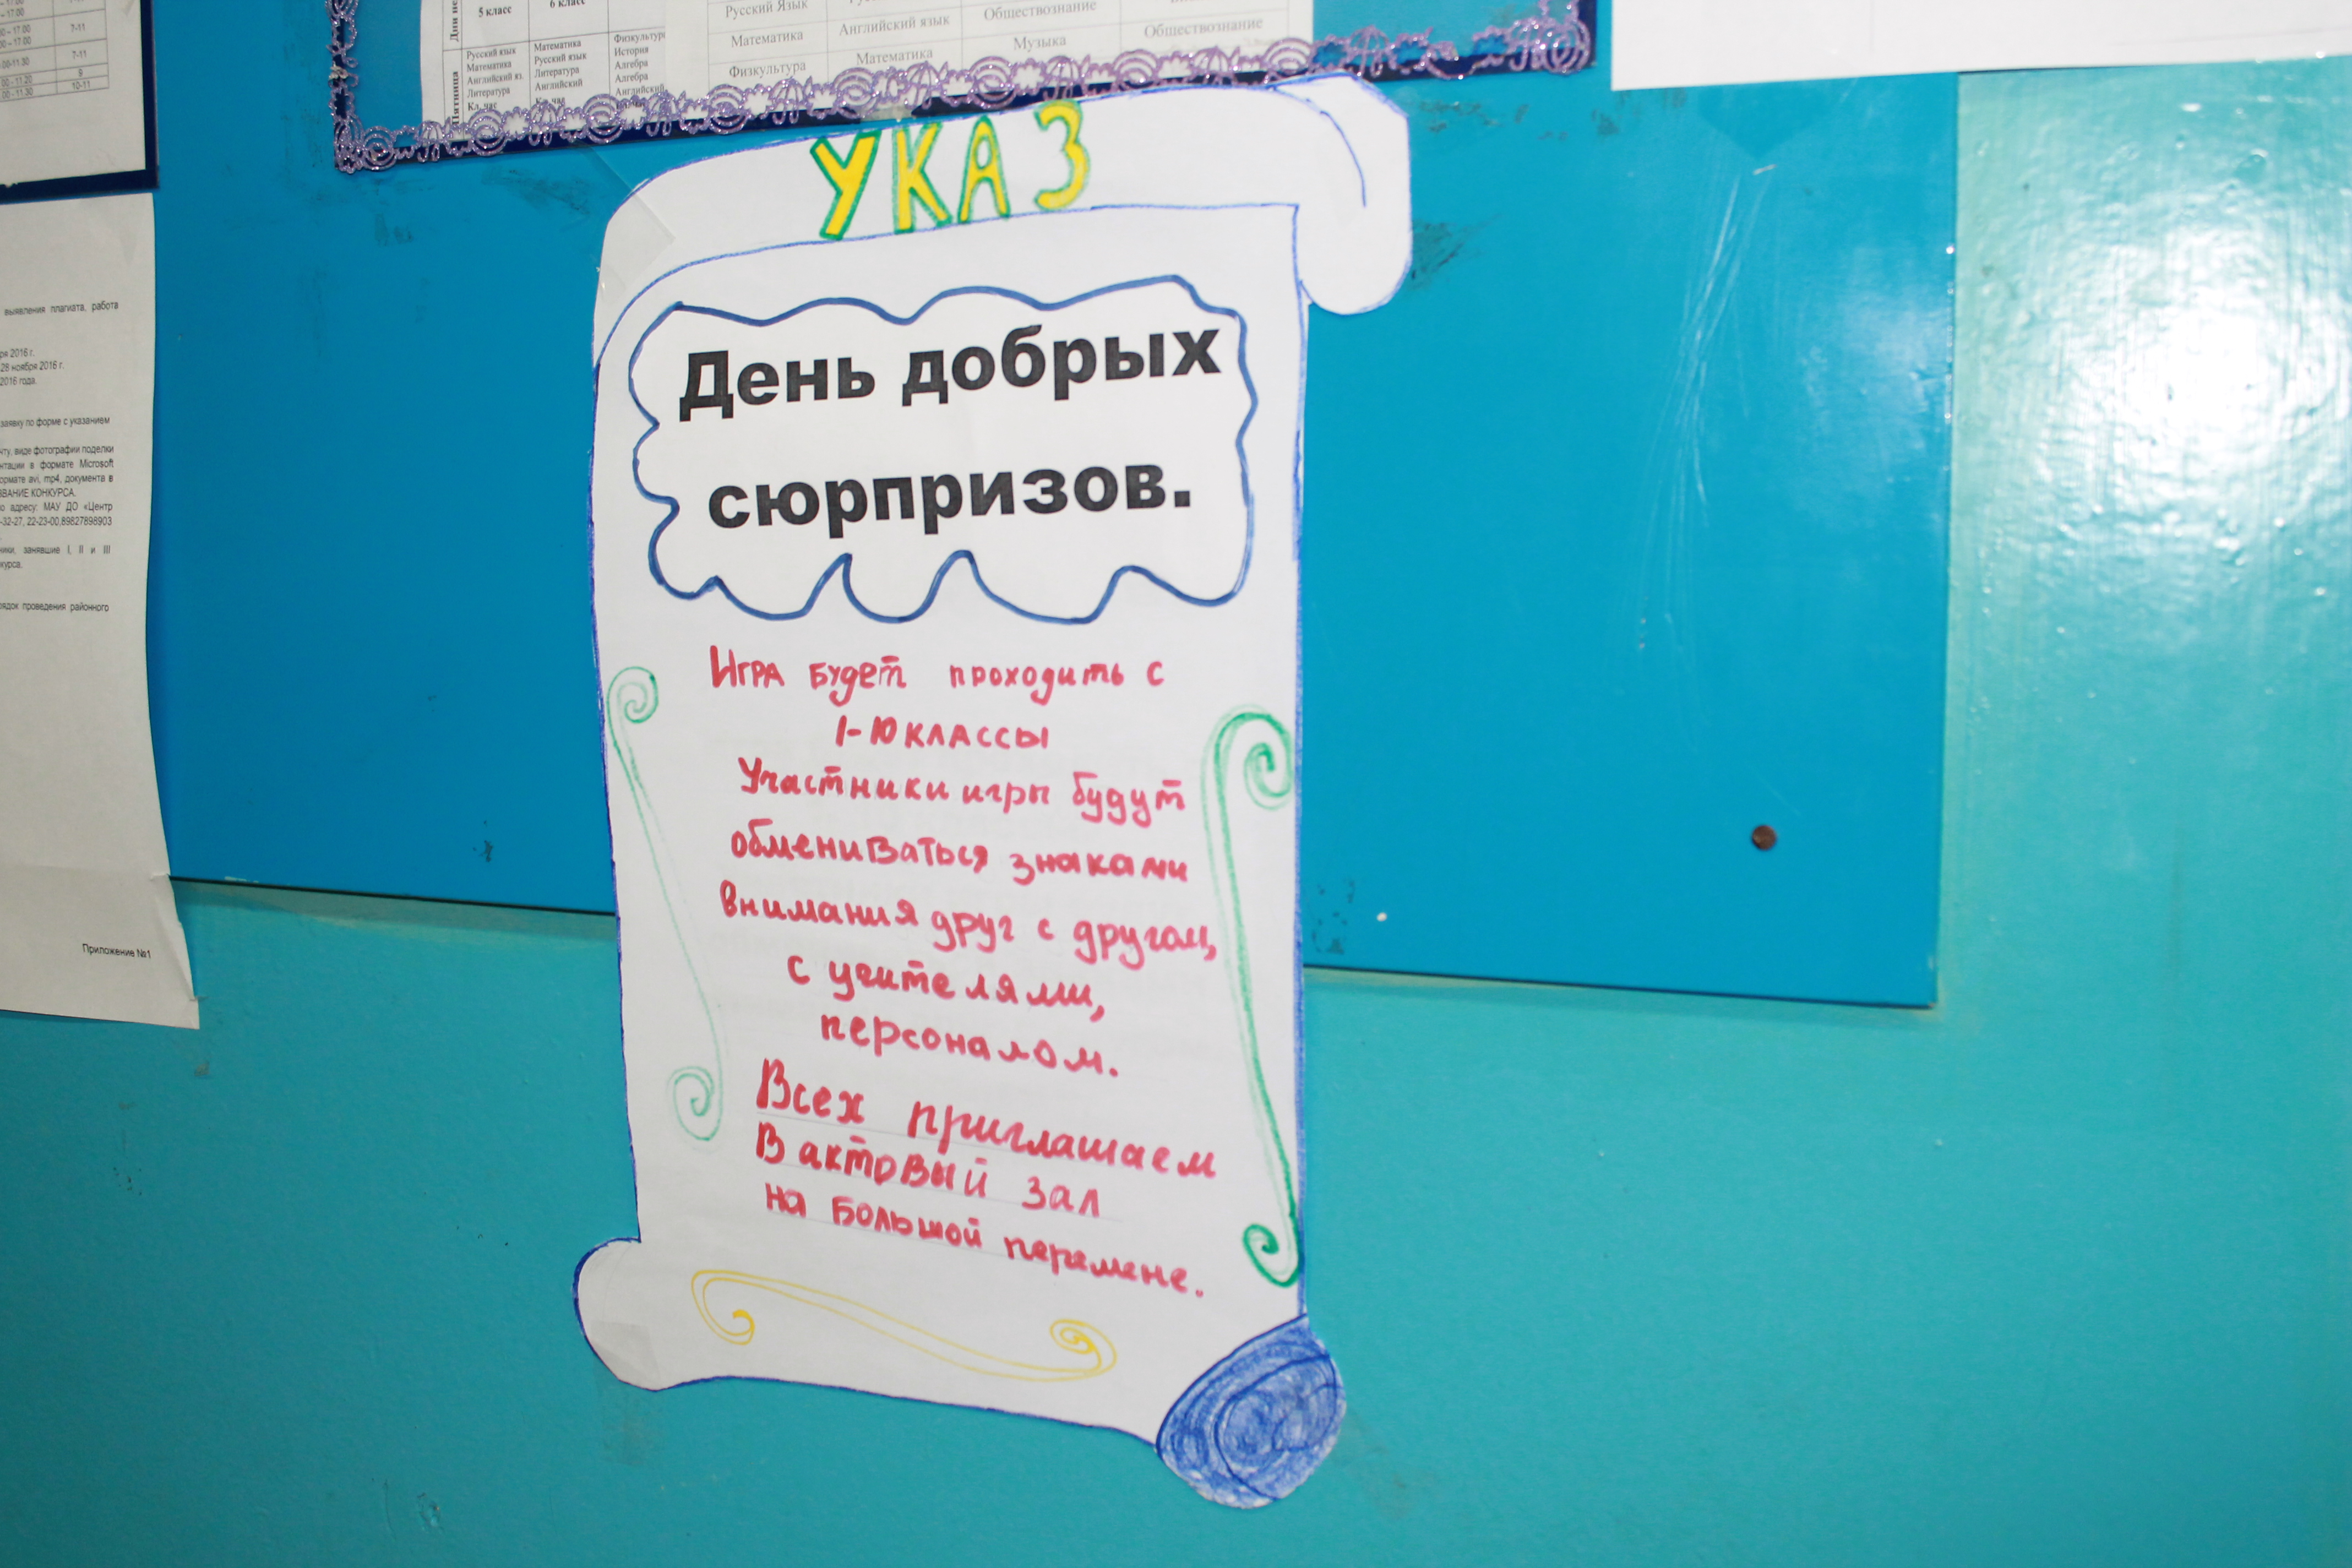 17.00
– 17.00
00 – 17.00
– 17.00
7-11
00-11.30
7-11
00 – 11.20
9
00 – 11.30
10-11
5 класс
6 класс
Пятница
Русский язык
Математика
Английский яз.
Литература
Кл. час
Математика
Русский язык
Литература
Английский
Кл. час
История
Алгебра
Алгебра
Английский
Русский Язык
Математика
Физкультура
Английский язык
Математика
Обществознание
Музыка
Обществознание
УКАЗ
День добрых
сюрпризов.
Игра будет проходить с
1-10 классы
Участники игры будут
обмениваться знаками
внимания друг с другом,
с учителями,
персоналом.
Всех приглашаем
В актовый зал
на большой перемене.
выявления плагиата, работа
2016 г.
28 ноября 2016 г.
2016 года.
заявку по форме с указанием
виде фотографии поделки
в формате Microsoft
avi, mp4, документа в
КОНКУРСА.
адресу: МАУ ДО «Центр
-32-27, 22-23-00,89827898903
занявшие I, II и III
проведения районного
Приложение №1